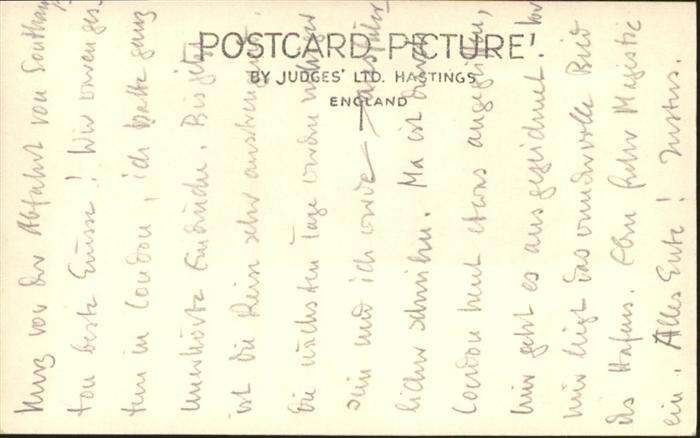 'POSTCARD PICTURE'.
BY JUDGES' LTD. HASTINGS
ENGLAND
Kurz vor der Abfahrt von Southamp-
ton beste Grüsse! Wir waren ges-
tern in London, ich hatte ganz
unerhörte Eindrücke. Bis jetzt
ist die Reise sehr anstrengend.
Die nächsten Tage werden ruhiger
sein und ich werde ausführ-
licher schreiben. Ma ist durch
London heut etwas angegriffen,
mir geht es ausgezeichnet. Vor
mir liegt das wundervolle Bild
des Hafens. Eben fährt Majestic
ein. Alles Gute! Justus.